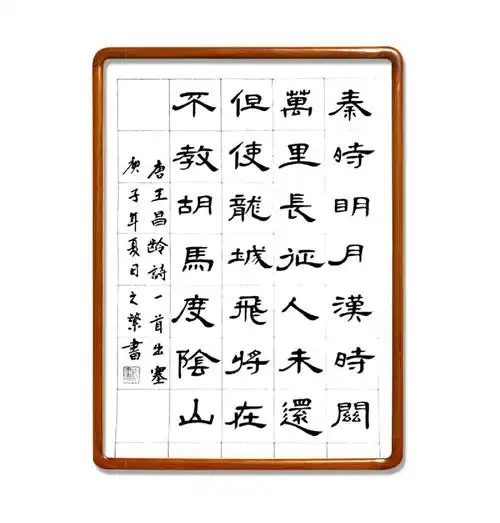 秦時明月漢時關
萬里長征人未還
但使龍城飛將在
不教胡馬度陰山
唐王昌龄詩一首出塞
庚子年夏日之書